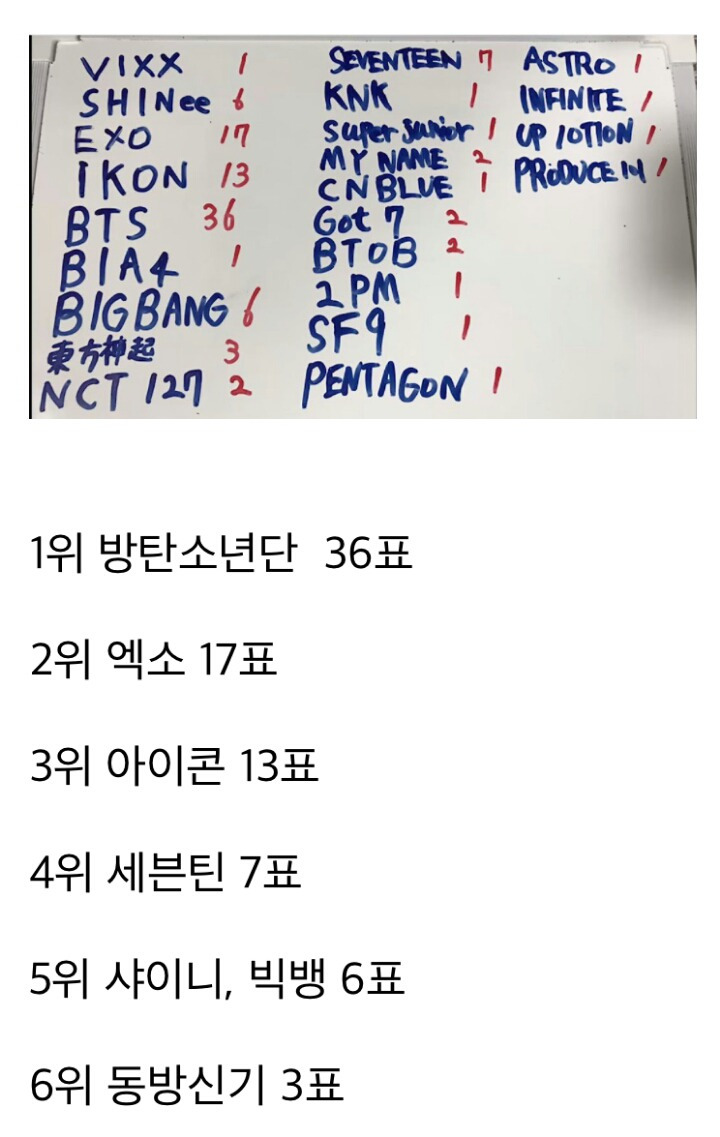 VIXX 1
SHINee 6
EXO 17
IKON 13
BTS 36
B1A4 1
BIGBANG 6
東方神起 3
NCT 127 2
SEVENTEEN 7
KNK 1
Super Junior 1
MY NAME 2
CNBLUE 1
Got 7 2
BTOB 2
2PM 1
SF9 1
PENTAGON 1
ASTRO 1
INFINITE 1
UP 10TION 1
PRODUCE 1
1위 방탄소년단 36표
2위 엑소 17표
3위 아이콘 13표
4위 세븐틴 7표
5위 샤이니, 빅뱅 6표
6위 동방신기 3표